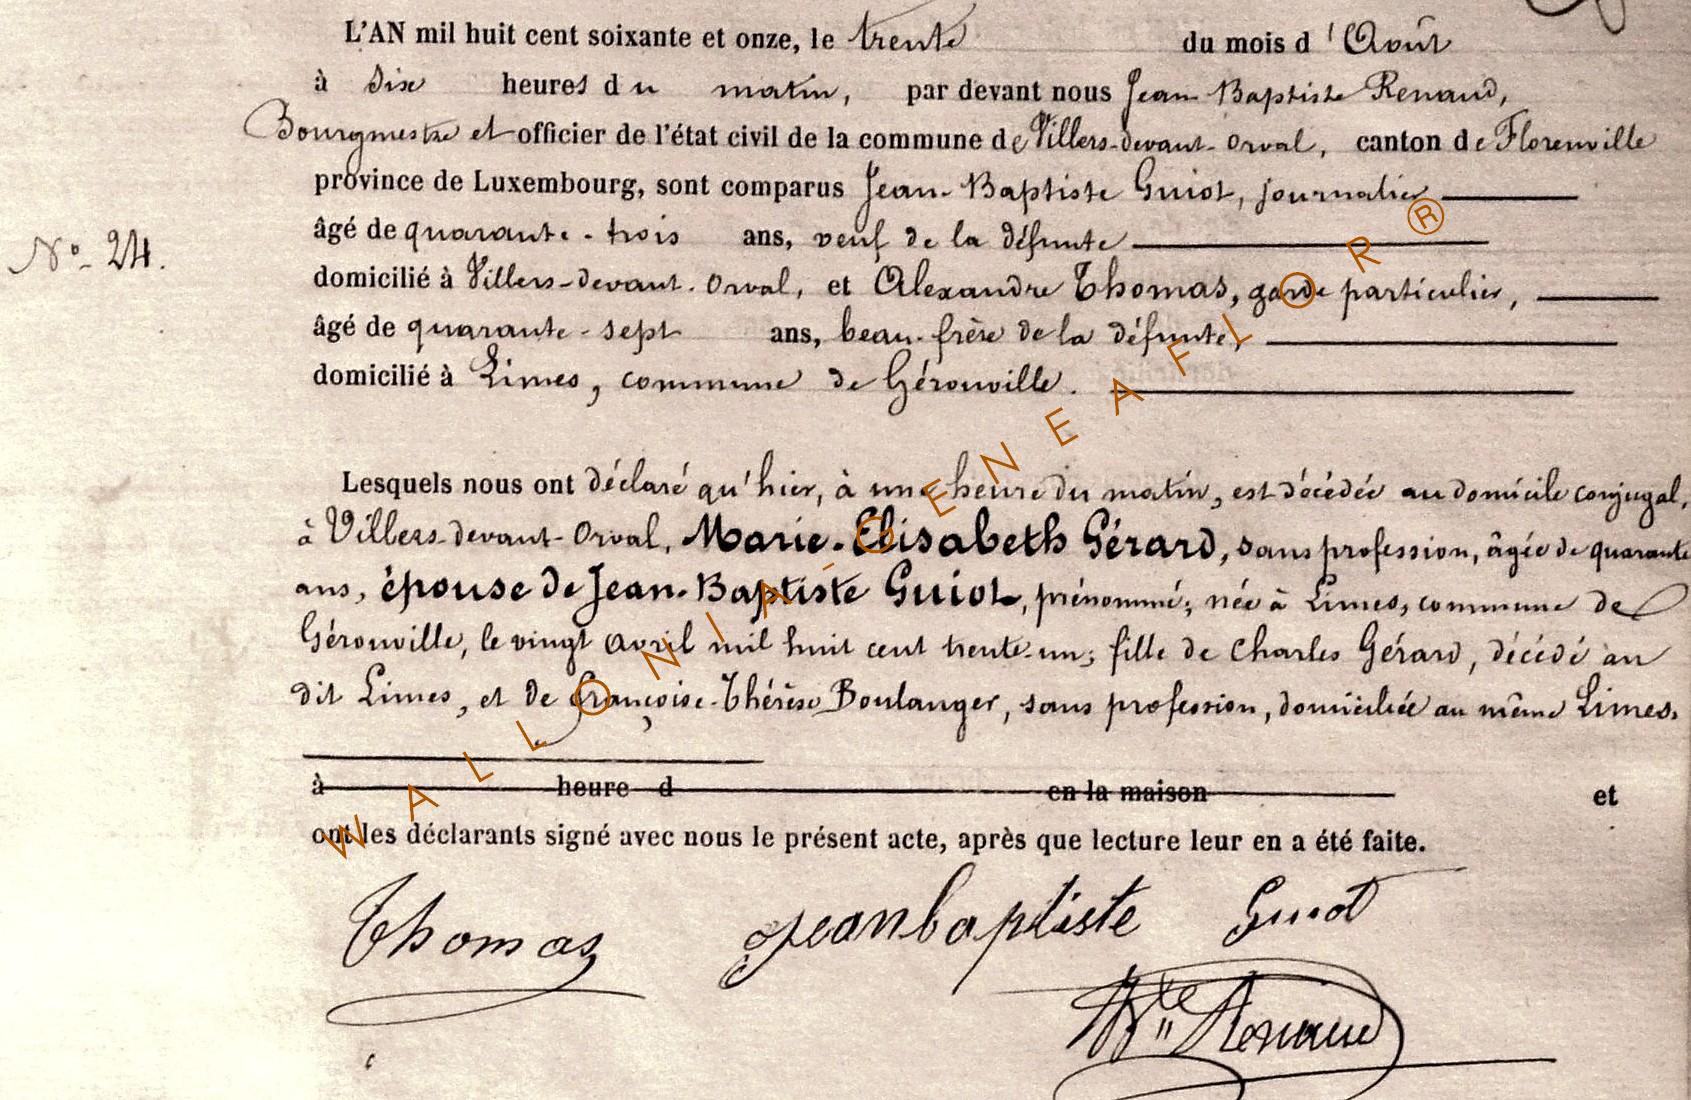 L'AN mil huit cent soixante et onze, le trente du mois d'Août
à six heures du matin, par devant nous Jean-Baptiste Renaud,
Bourgmestre et officier de l'état civil de la commune de Villers-devant-Orval, canton de Florenville
province de Luxembourg, sont comparus Jean-Baptiste Guiot, journalier
âgé de quarante-trois ans, veuf de la défunte
N° 24.
domicilié à Villers-devant-Orval, et Alexandre Thomas, garde particulier,
âgé de quarante-sept ans, beau-frère de la défunte,
domicilié à Limes, commune de Gérouville.
Lesquels nous ont déclaré qu'hier, à une heure du matin, est décédée au domicile conjugal,
à Villers-devant-Orval, Marie-Elisabeth Gérard, sans profession, âgée de quarante
ans, épouse de Jean-Baptiste Guiot, prénommé; née à Limes, commune de
Gérouville, le vingt avril mil huit cent trente-un; fille de Charles Gérard, décédé au
dit Limes, et de Françoise-Thérèse Boulanger, sans profession, domiciliée au même Limes.
à heure d en la maison et
ont les déclarants signé avec nous le présent acte, après que lecture leur en a été faite.
Thomas jeanbaptiste Guiot
Bte Renaud
WALLONIA-GENEAFLOR®